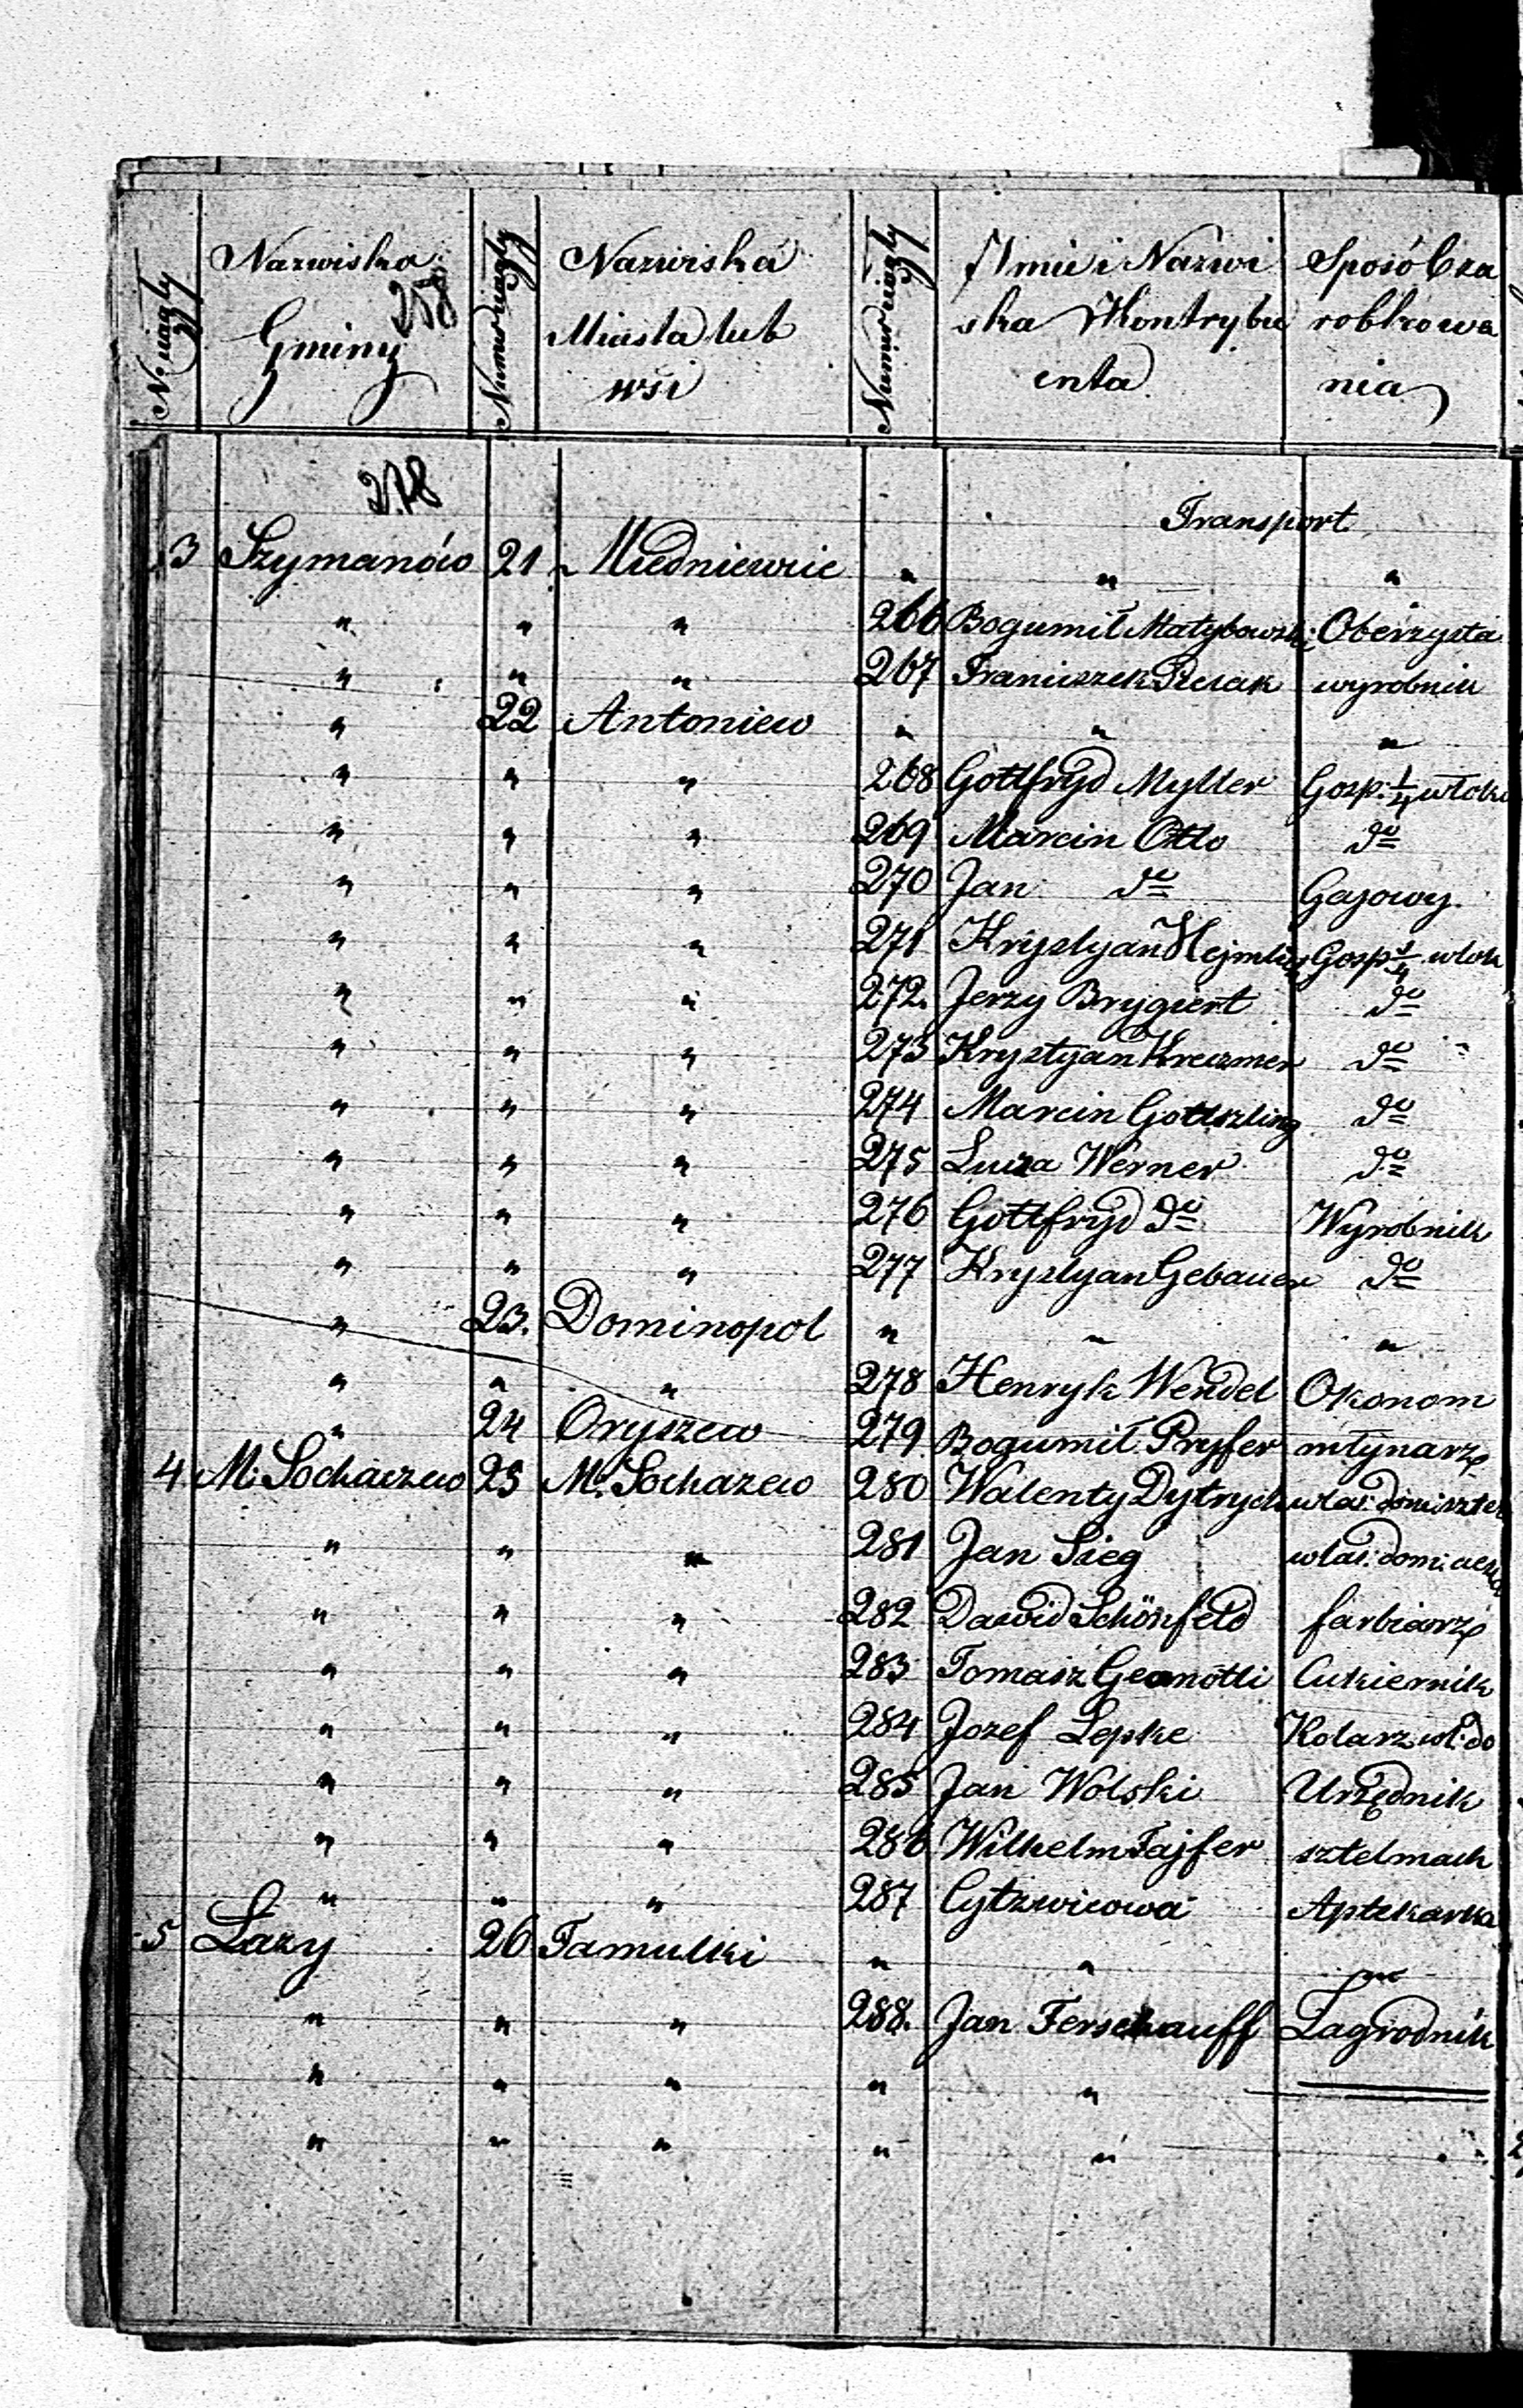 N: ciągły | Nazwiska Gminy | Numer ciągły | Nazwiska Miasta lub wsi | Numer ciągły | Imie i Nazwiska Kontrybuenta | Sposób zarobkowania
258
218
Transport
3 Szymanów 21 Miedniewice " " "
" " " 266 Bogumił Matybowski Oberzysta
" " " 267 Franciszek wyrobnik
" 22 Antoniew " " "
" " " 268 Gottfryd Myller Gosp: 1/4 włoki
" " " 269 Marcin Otto do
" " " 270 Jan do Gajowy.
" " " 271 Krystyan Gosp 1/4 włok
" " " 272. Jerzy Brygiert do
" " " 273 Krystyan Kreczmer do
" " " 274 Marcin Gottszling do
" " " 275 Luiza Werner do
" " " 276 Gottfryd do Wyrobnik
" " " 277 Krystyan Gebauer do
" 23. Dominopol " " "
" " " 278 Henryk Wendel Okonom
" 24 Oryszew 279. Bogumił Pryfer młynarz
4 M. Sochaczew 25 M. Sochazew 280 Walenty Dytrych właś: domu
" " " 281 Jan Sieg właś: dom:
" " " 282 Dawid Schönfeld farbiarz
" " " 283 Tomasz Cukiernik
" " " 284 Jozef Lepke Kolarz wł: do
" " " 285 Jan Wolski Urzędnik
" " " 286 Wilhelm Fajfer sztelmach
" " " 287 Cytzwicowa Aptekarka
5 Łazy 26 Famulki " " "
" " " 288. Jan Ferschauff Zagrodnik
" " " " "
" " " " "